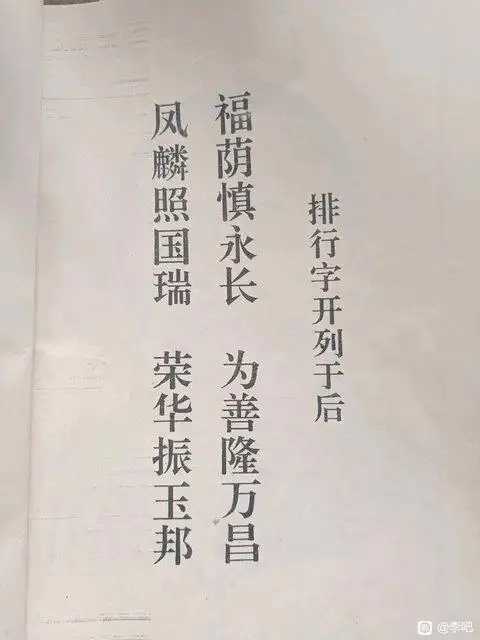 排行字开列于后
福荫慎永长 为善隆万昌
凤麟照国瑞 荣华振玉邦
@李吧